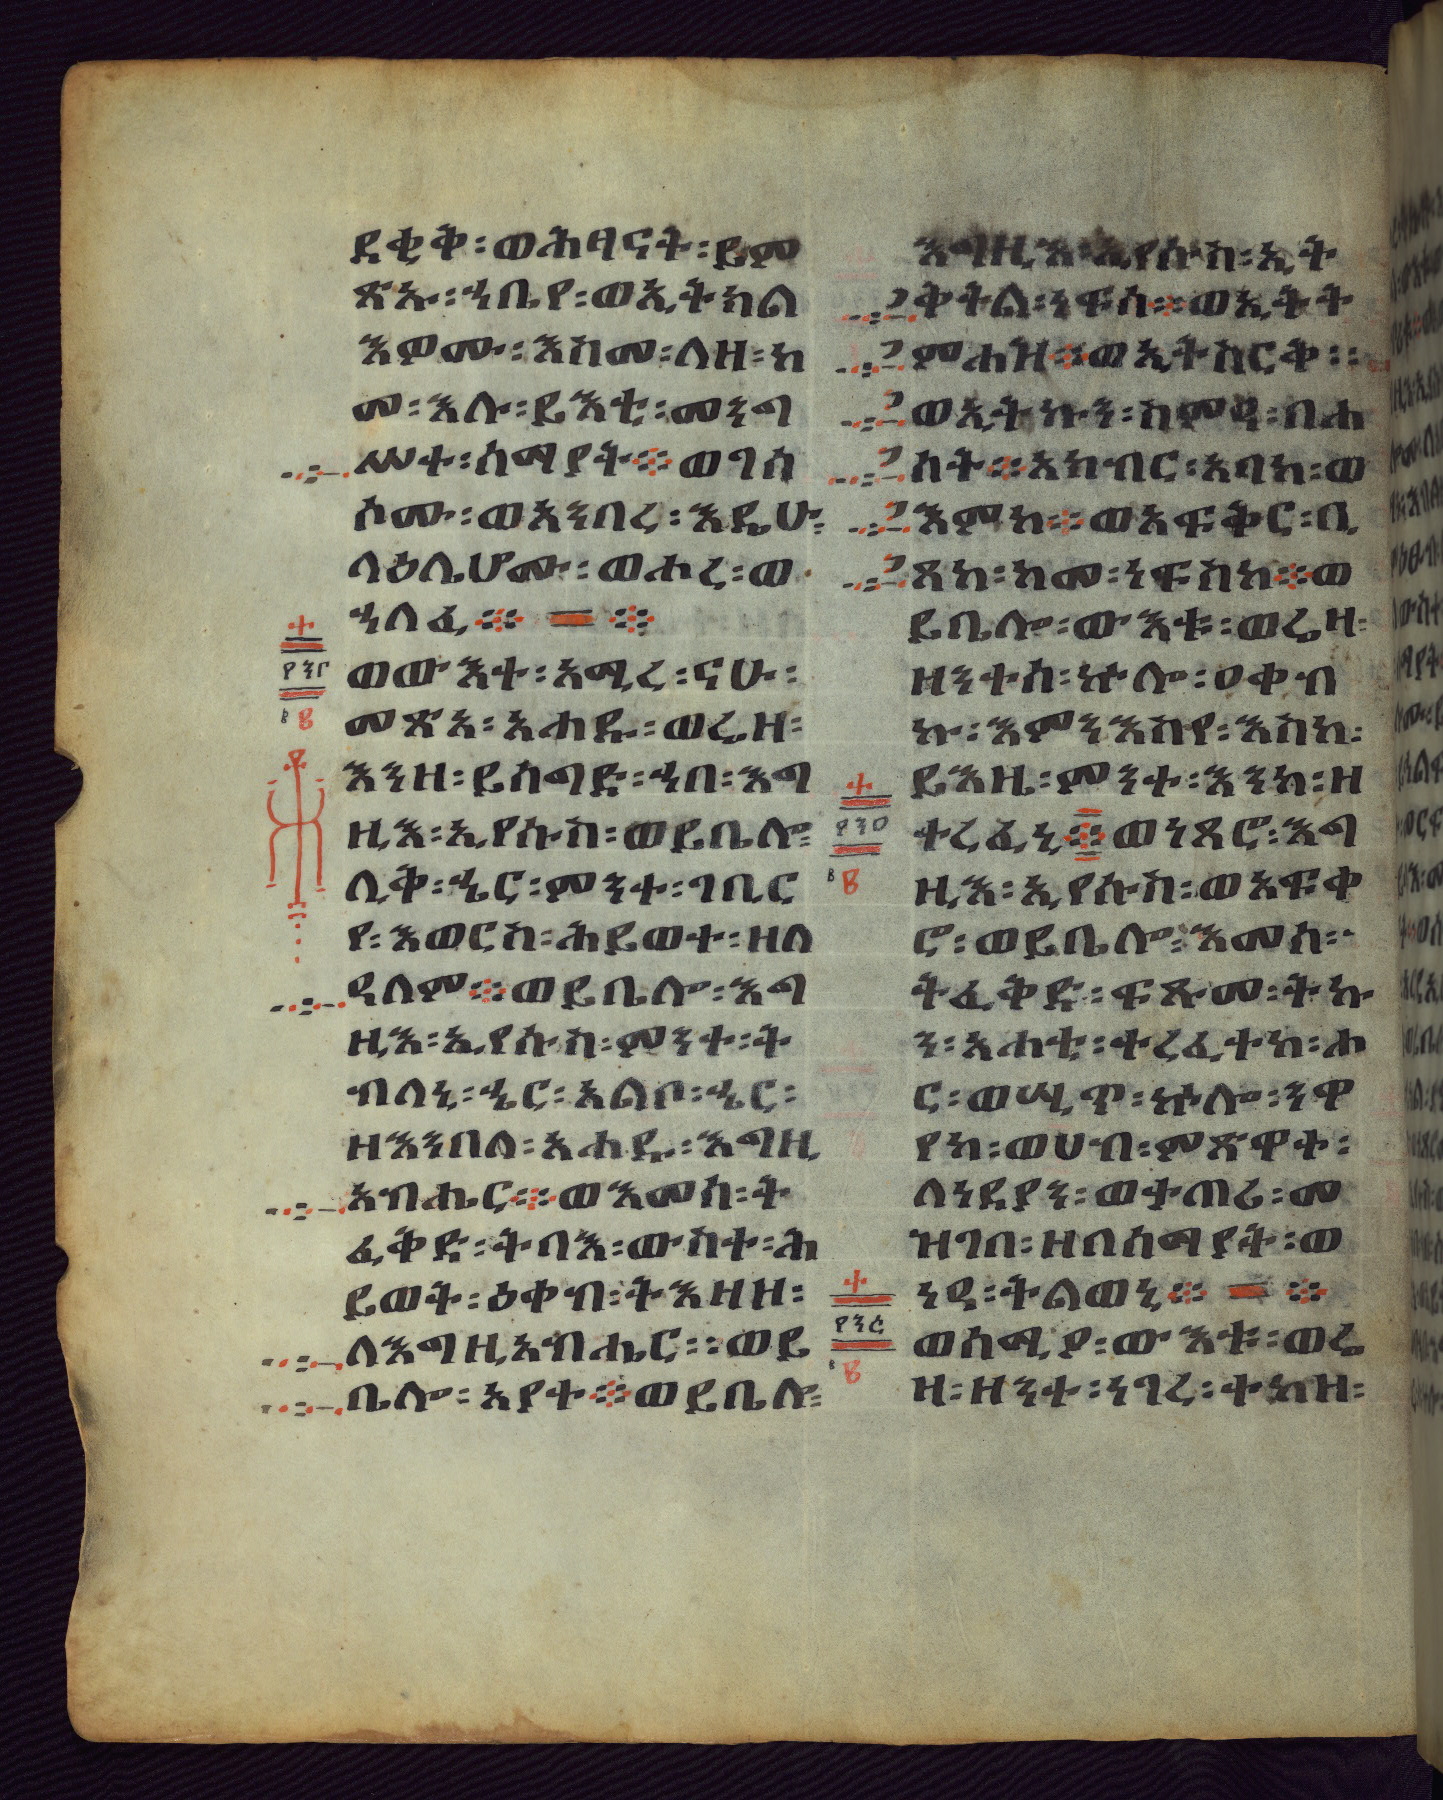 ደቂቅ፡ወሕፃናት፡ይም
ጽኡ፡ኀቤየ፡ወኢትክል
እዎሙ፡እስመ፡ለዘ፡ከ
መ፡እሉ፡ይእቲ፡መንግ
ሥተ፡ሰማያት፨ወገሰ
ሶሙ፡ወአንበረ፡እዴሁ፡
ላዕሌሆሙ፡ወሖረ፡ወ
ኀለፈ፨ ፨
፲፺፫
ወውእተ፡አሚረ፡ናሁ፡
መጽአ፡አሐዱ፡ወሬዘ፡
እንዘ፡ይሰግድ፡ኀበ፡እግ
ዚእ፡ኢየሱስ፡ወይቤሎ፡
ሊቅ፡ኄር፡ምንተ፡ገቢር
የ፡እወርስ፡ሕይወተ፡ዘለ
ዓለም፨ወይቤሎ፡እግ
ዚእ፡ኢየሱስ፡ምንተ፡ት
ብለኒ፡ኄር፡አልቦ፡ኄር፡
ዘእንበለ፡አሐዱ፡እግዚ
አብሔር፨ወእመሰ፡ት
ፈቅድ፡ትባእ፡ውስተ፡ሕ
ይወት፡ዕቀብ፡ትእዛዘ፡
ለእግዚአብሔር፡፡ወይ
ቤሎ፡አየተ፨ወይቤሎ፡
እግዚእ፡ኢየሱስ፡ኢት
ቅትል፡ነፍሰ፨ወኢትት
ማሐዝ፨ወኢትስርቅ፡፡
ወኢትኩን፡ስምዓ፡በሐ
ሰት፨አክብር፡አባከ፡ወ
እምከ፨ወአፍቅር፡ቢ
ጸከ፡ከመ፡ነፍስከ፨ወ
ይቤሎ፡ውእቱ፡ወሬዛ፡
ዘንተሰ፡ኵሎ፡ዐቀብ
ኩ፡እምንእስየ፡እስከ፡
ይእዜ፡ምንተ፡እንከ፡ዘ
ተረፈኒ፨ወነጸሮ፡እግ
ዚእ፡ኢየሱስ፡ወአፍቀ
ሮ፡ወይቤሎ፡እመሰ፡
ትፈቅድ፡ፍጹመ፡ትኩ
ን፡አሐቲ፡ተረፈተከ፡ሑ
ር፡ወሢጥ፡ኵሎ፡ንዋ
የከ፡ወሀብ፡ምጽዋተ፡
ለነዳያን፡ወተጠሪ፡መ
ዝገበ፡ዘበሰማያት፡ወ
ነዓ፡ትልወኒ፨ ፨
ወሰሚዖ፡ውእቱ፡ወሬ
ዛ፡ዘንተ፡ነገረ፡ተከዘ፡